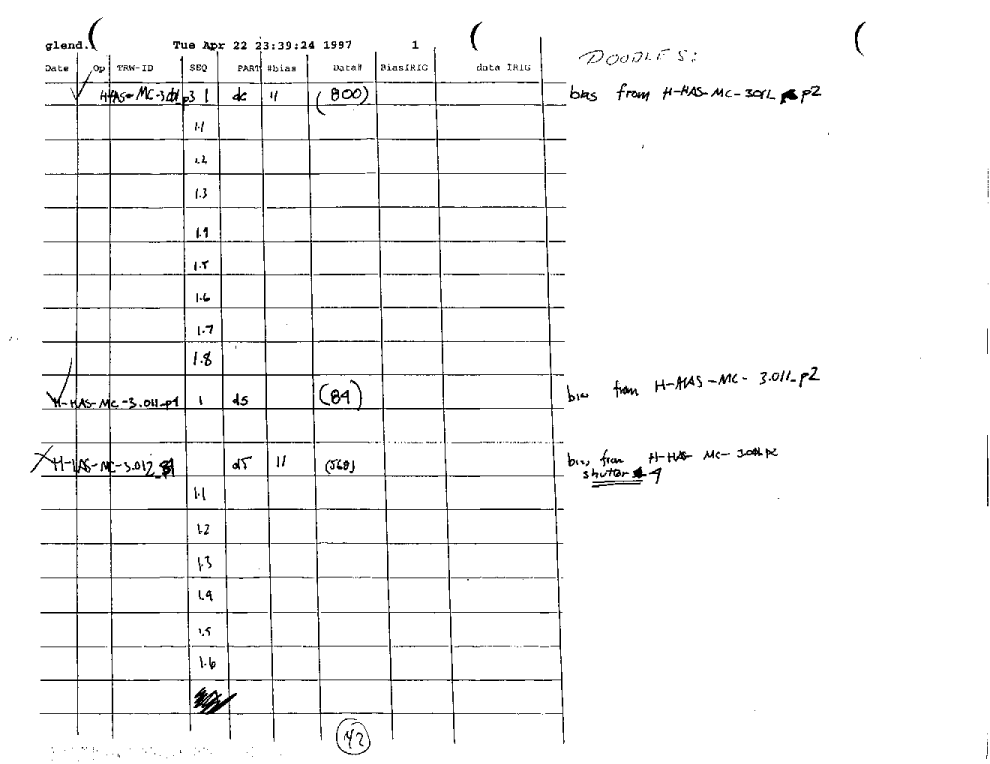 glend. Tue Apr 22 23:39:24 1997 1
DOODLES:
Date Op TRW-ID SEQ PART #bias Data# BiasIRIG data IRIG
p3 1 dc 11 (800) bias from H-HAS-MC-3.011 p2
1.1
1.2
1.3
1.4
1.5
1.6
1.7
1.8
H-HAS-MC-3.011-p4 1 d5 (84) bias from H-HAS-MC-3.011-p2
H-HAS-MC-3.012 d5 11 (568) bias from H-HAS MC-
shutter 4
1.1
1.2
1.3
1.4
1.5
1.6
42